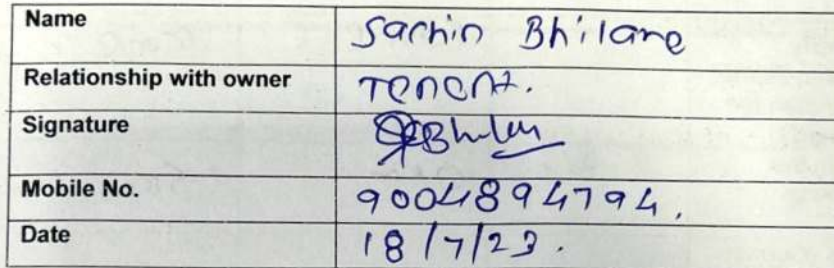 Name Sachin Bhilare
Relationship with owner Tenent.
Signature
Mobile No. 9004894794.
Date 18/7/23.